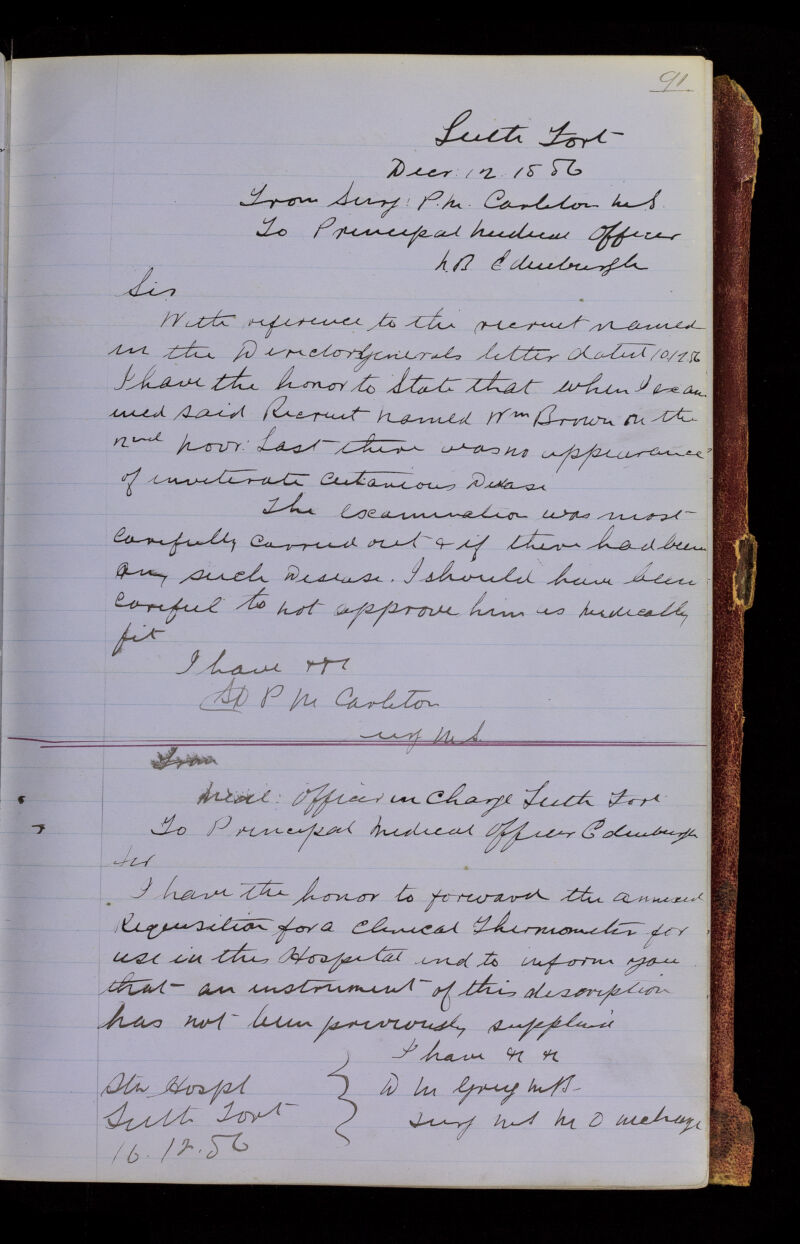 91.
Leith Fort
Decr. 12. 1886
From Surg: P. M. Carleton M.S.
To Principal Medical Officer
N B Edinburgh
Sir
With reference to the recruit named
in the Director Generals letter dated 10/12/86
I have the honor to State that when I exam
ined said Recruit named Wm Brown on the
2nd Novr: Last there was no appearance
of inveterate Cutaneous Disease
The examination was most
carefully carried out & if there had been
any such Disease. I should have been
careful to not approve him as Medically
fit
I have &&c
SD P M Carleton
Surg M.S.
From
Medl: Officer in Charge Leith Fort
To Principal Medical Officer Edinburgh
Sir
I have the honor to forward the annexed
Requisition for a Clinical Thermometer for
use in this Hospital and to inform you
that an instrument of this description
has not been previously supplied
I have &c &c
Stn Hospl
D M Greig M.B.
Leith Fort
Surg M S M O incharge
16.12.86